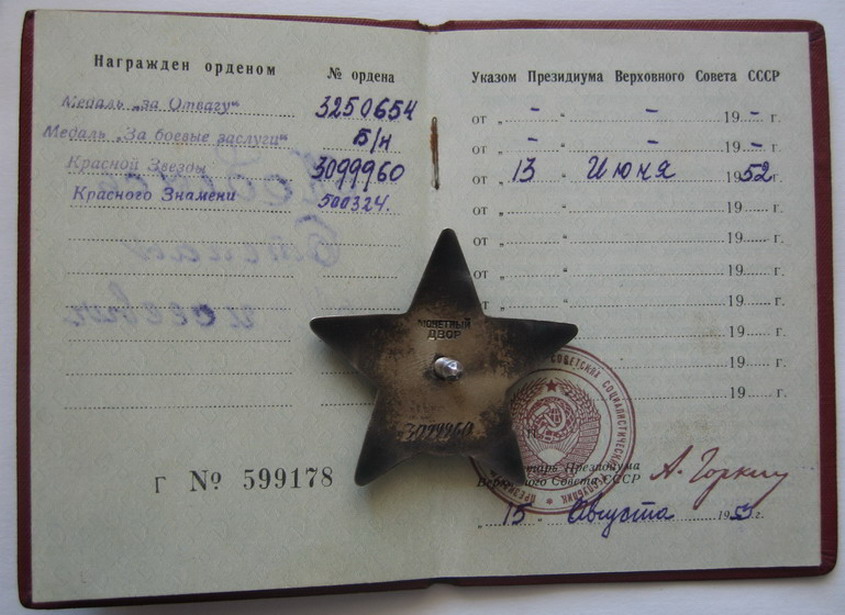 Награжден орденом
№ ордена
Медаль „За Отвагу“
3250654
Медаль „За боевые заслуги“
Б/Н
Красной Звезды
3099960
Красного Знамени
500324.
Г № 599178
Указом Президиума Верховного Совета СССР
от „ - “ - 19 - г.
от „ - “ - 19 - г.
от „ 13 “ Июня 1952 г.
от „ “ 19 г.
от „ “ 19 г.
от „ “ 19 г.
от „ “ 19 г.
“ 19 г.
19 г.
“ 19 г.
МОНЕТНЫЙ
ДВОР
3099960
Президиума
Верховного Совета СССР
А. Горкин
„ 15 “ Августа 1953 г.